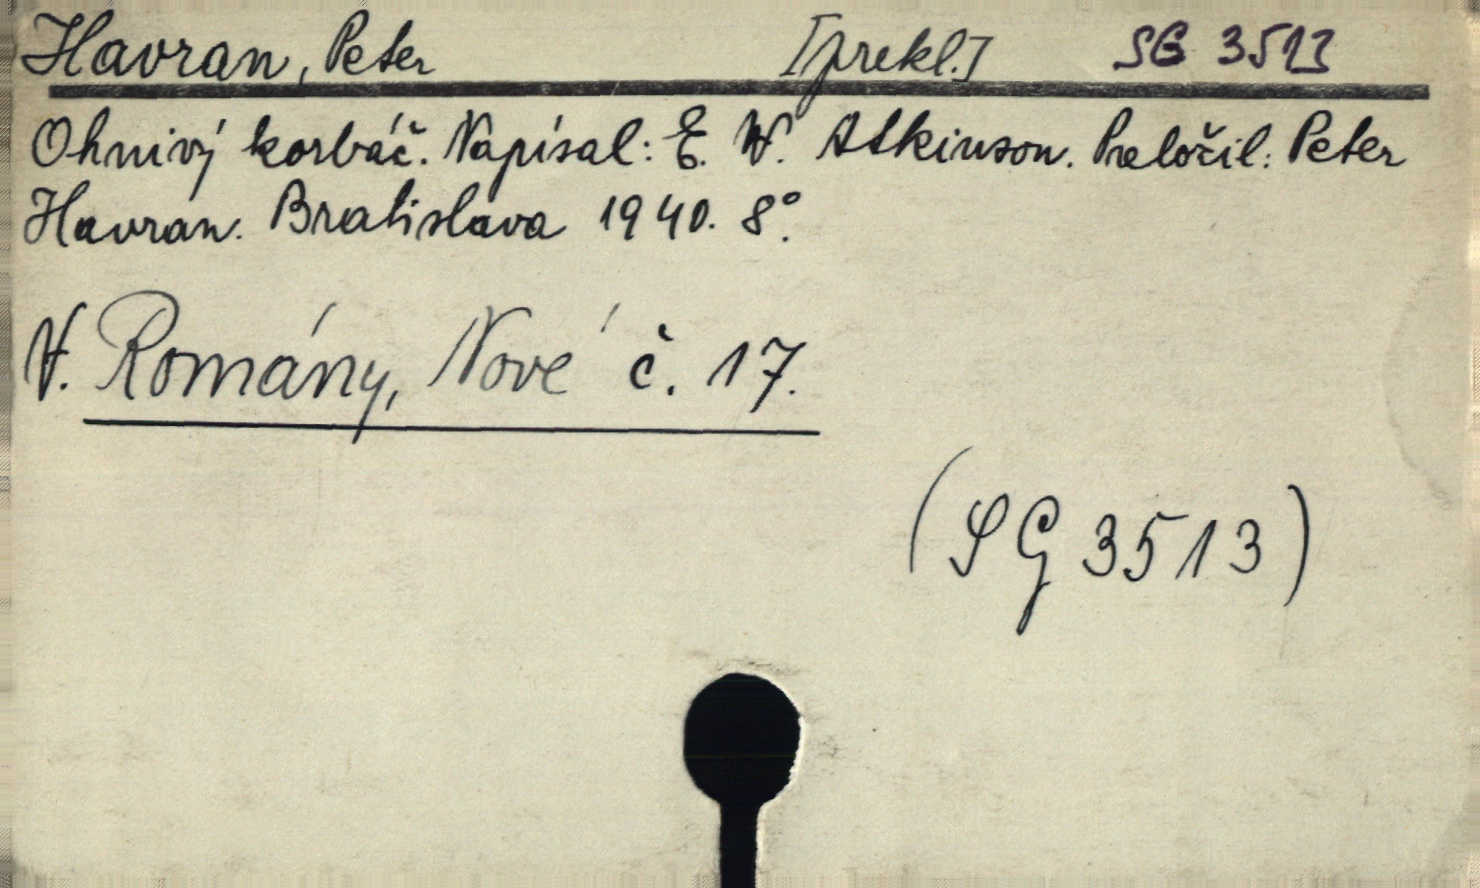 Havran, Peter [prekl.] SG 3513
Ohnivý korbáč. Napísal: E. W. Atkinson. Preložil: Peter
Havran. Bratislava 1940. 8°.
V. Romány, Nové č. 17.
(SG 3513)